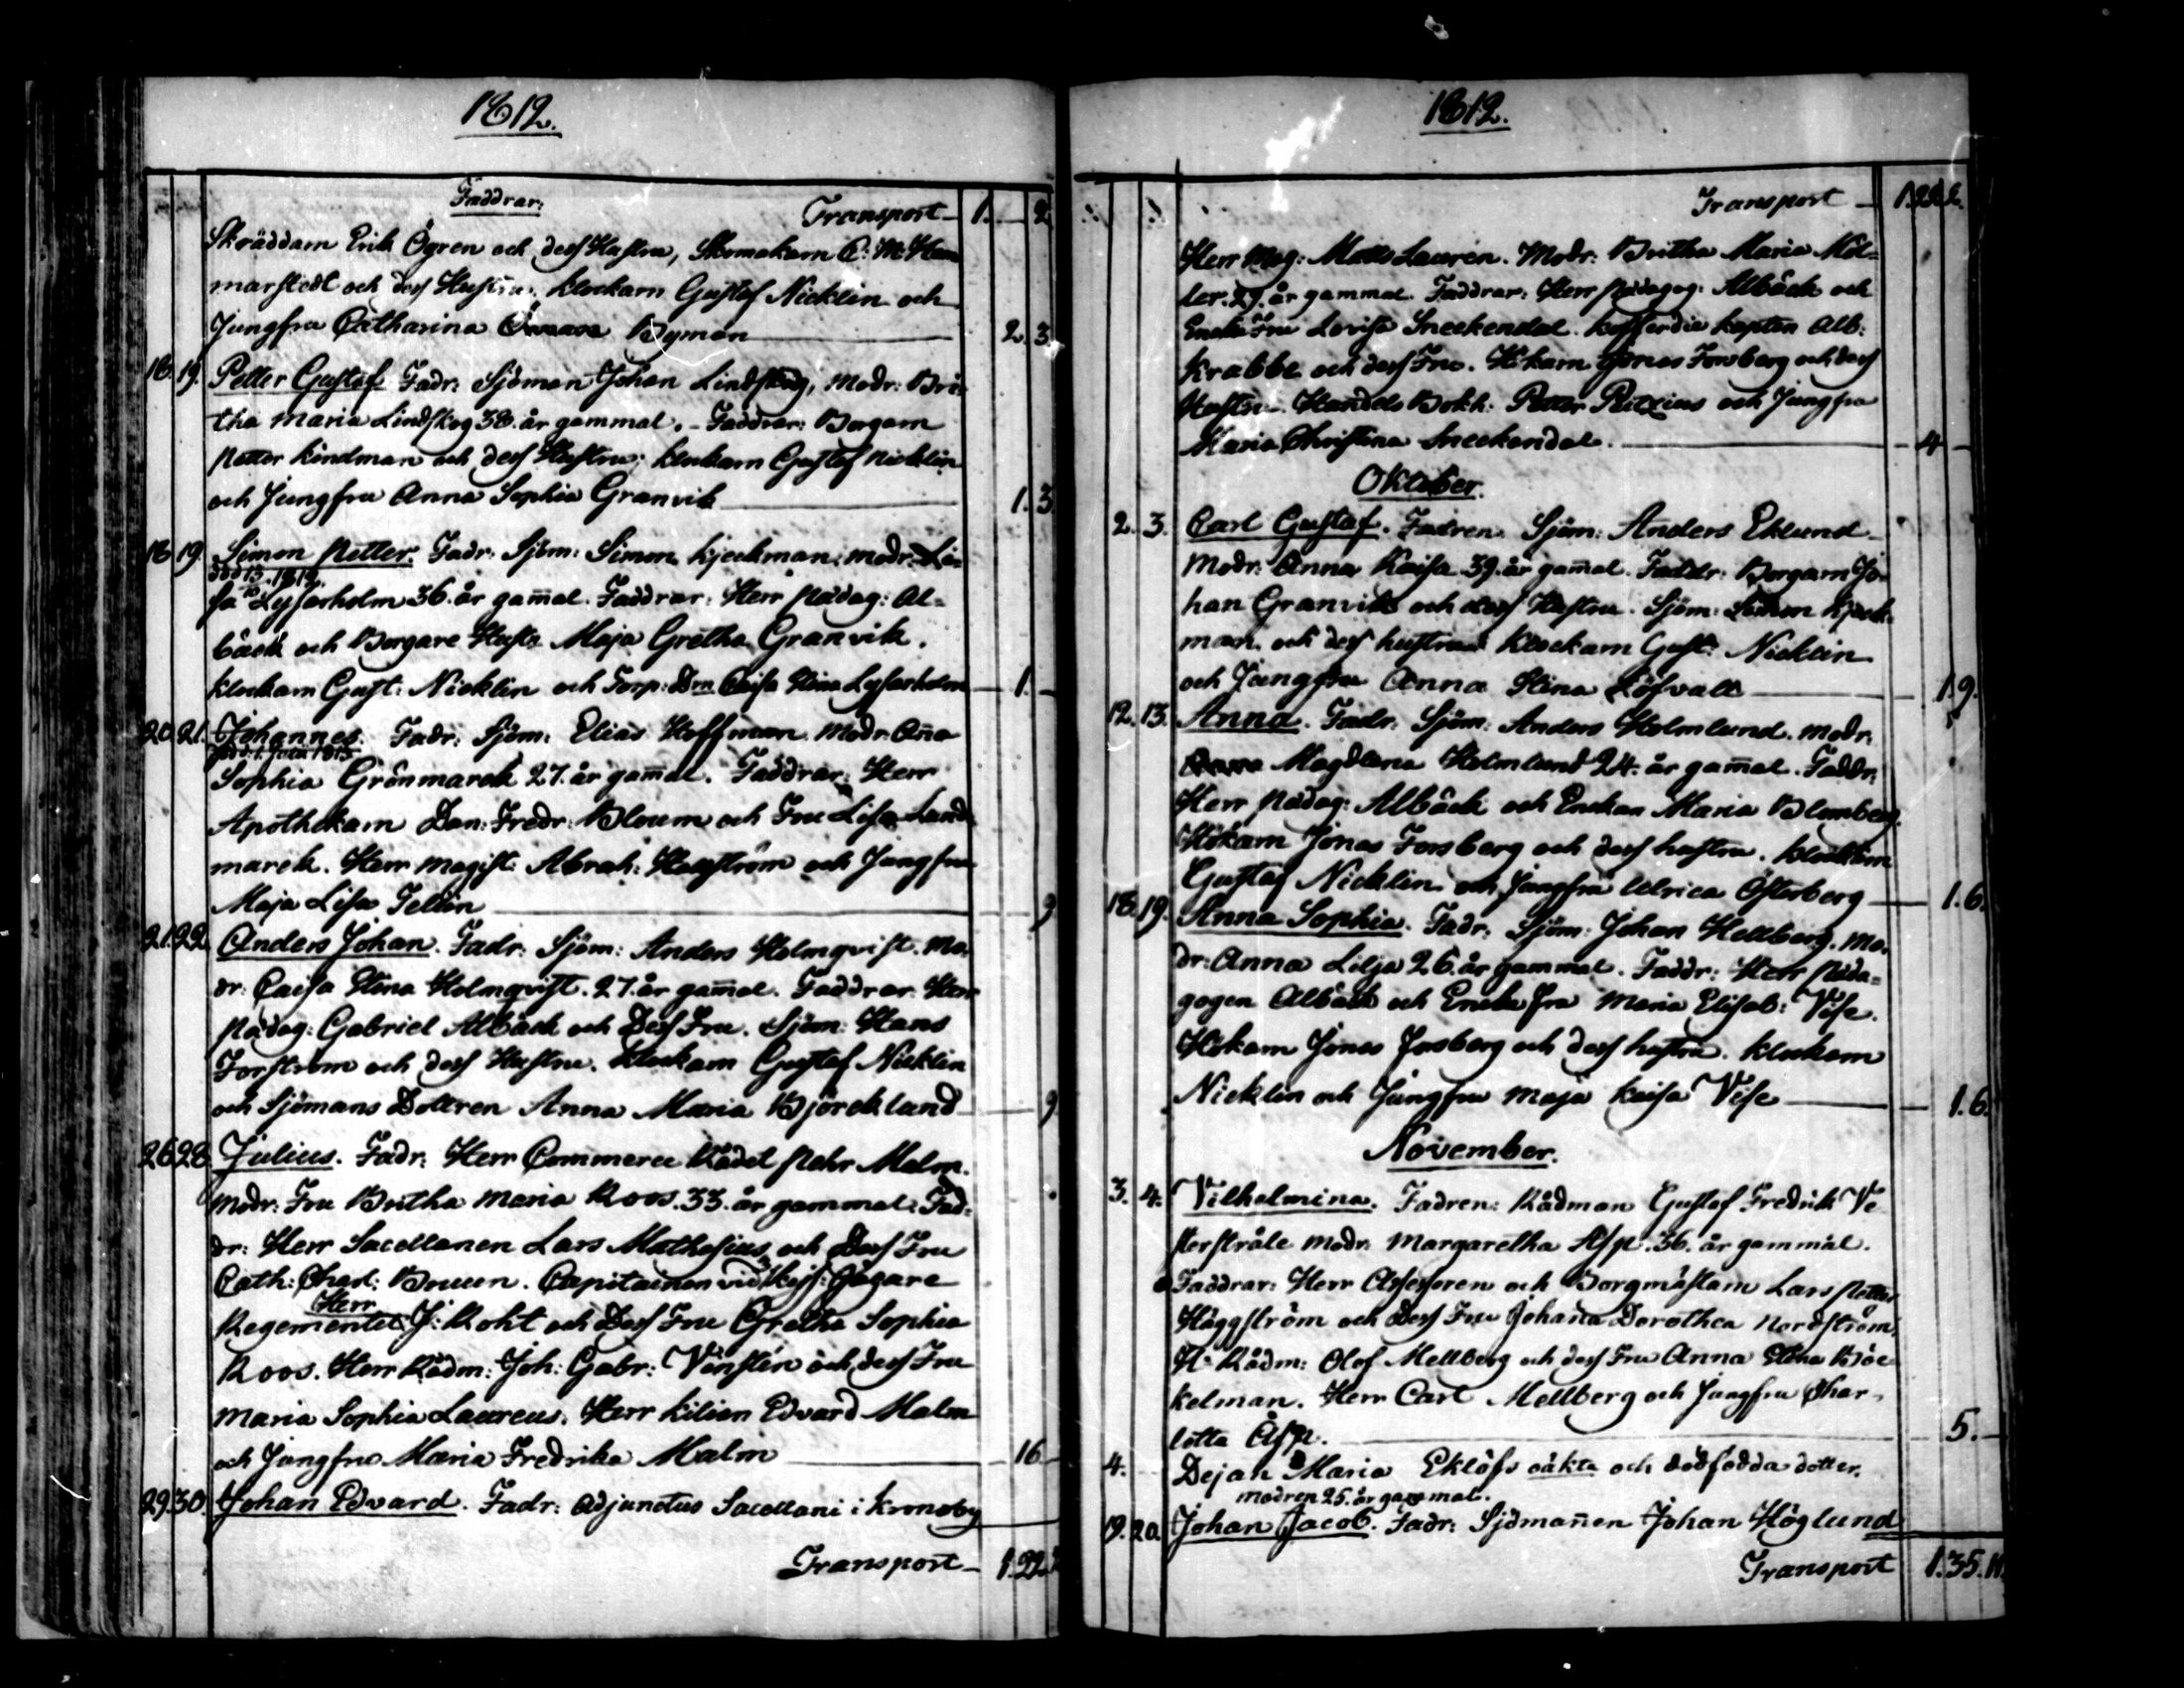 1812.
Faddrar:
Transport 1. — 2.
Skräddarn Erik Ögren och dess Hustru, Skomakarn C: M: Ham
marstedt och dess Hustru. Klockarn Gustaf Nicklin och
Jungfru Catharina Byman 2. 3
18. 19. Petter Gustaf Fadr: Sjöman Johan Lindskog, Modr: Bri
tha Maria Lindskog 38. år gammal. Faddrar: Borgarn
Petter Kindman och dess Hustru; Klockarn Gustaf Nicklin
och Jungfru Anna Sophia Granvik 1. 3
18 19. Simon Petter. Fadr: Sjöm: Simon Kjeckman; Modr: Lo-
1812.
sa Lysarholm 36. år gam̄al. Faddrar: Herr Pädag: Al-
bäck och Borgare Hustr Maja Gretha Granvik.
Klockarn Gust: Nicklin och Torp: Dr Caisa Stina Lysarholm 1. —
20. 21. Johannes. Fadr: Sjöm: Elias Hoffman. Modr: Aña
död: 1. Julii 1813
Sophia Grönmarck 27. år gam̄al. Faddrar: Herr
Apothekarn Dan: Fredr: Bloum och Fru Lisa Land
marck. Herr Magist: Abrah: Hällström och Jungfru
Maja Lisa Tellin 9
21. 22. Anders Johan. Fadr: Sjöm: Anders Holmqvist. Mo
dr: Caisa Stina Holmqvist. 27. år gam̄al. Faddrar: Herr
Pädag: Gabriel Albäck och Dess Fru. Sjöm: Hans
Forström och dess Hustru. Klockarn Gustaf Nicklin
och Sjömans Dottren Anna Maria Björcklund 9
26 28 Julius. Fadr: Herr Commerce Rådet Pehr Malm.
Modr: Fru Britha Maria Roos. 33. år gammal. Fad-
dr: Herr Sacellanen Lars Mathesius och Dess Fru
Cath: Charl: Bruun. Capitainen vid Kejs: Jägare
Herr
Regementet J: Rokt och Dess Fru Gretha Sophia
Roos. Herr Rådm: Joh: Gabr: Vänstén och dess Fru
Maria Sophia Laureus. Herr Kilian Edvard Malm
och Jungfru Maria Fredrika Malm 16
29. 30. Johan Edvard. Fadr: Adjunctus Sacellani i Kronoby
Transport 1. 22.
1812.
Transport
Herr Mag: Matts Laurén. Modr: Britha Maria Möl-
ler. 29. år gammal. Faddrar: Herr Pädagog: Albäck och
Enke Fru Lovisa Sneckendal. Kofferdie Kapten Alb:
Krabbe och dess Fru. Hökarn Jonas Forsberg och dess
Hustru. Handels Bokh: Petter Ritzius och Jungfru
Maria Christina Sneckendal. 4
Oktober.
2. 3. Carl Gustaf. Fadren Sjöm: Anders Eklund
Modr: Anna Kaisa 39. år gam̄al. Faddr: Borgarn Jo-
han Granvik och dess Hustru. Sjöm: Simon Kjeck-
man och dess hustru Klockarn Gust: Nicklin
och Jungfru Anna Stina Löfvall 1. 9.
12. 13. Anna. Fadr: Sjöm: Anders Holmlund. Modr:
Magdlena Holmlund 24. år gam̄al. Faddr:
Herr Pädag: Albäck och Enckan Maria Blomberg.
Hökarn Jonas Forsberg och dess hustru. Klockarn
Gustaf Nicklin och Jungfru Ulrica Österberg 1. 6.
18. 19. Anna Sophia. Fadr: Sjöm: Johan Hellberg. Mo-
dr: Anna Lilja 26. år gammal. Faddr: Herr Päda-
gogen Albäck och Encke fru Maria Elisab: Vise.
Hökarn Jonas Forsberg och dess hustru. Klockarn
Nicklin och Jungfru Maja Kaisa Vise 1. 6.
November.
3. 4. Vilhelmina. Fadren: Rådman Gustaf Fredrik Ve
sterstråle Modr: Margaretha Asp. 36. år gammal.
Faddrar: Herr Assessoren och Borgmästarn Lars Petter
Häggström och Dess Fru Johaña Dorothea Nordström.
Hr Rådm: Olof Mellberg och dess Fru Anna Stina Böc
kelman. Herr Carl Mellberg och Jungfru Char-
lotta Asp. 5. —
4. Dejan Maria Eklöfs oäkta och dödfödda dotter.
modren 25. år gammal.
19. 20. Johan Jacob. Fadr: Sjömañen Johan Höglund
Transport 1. 35. 11.